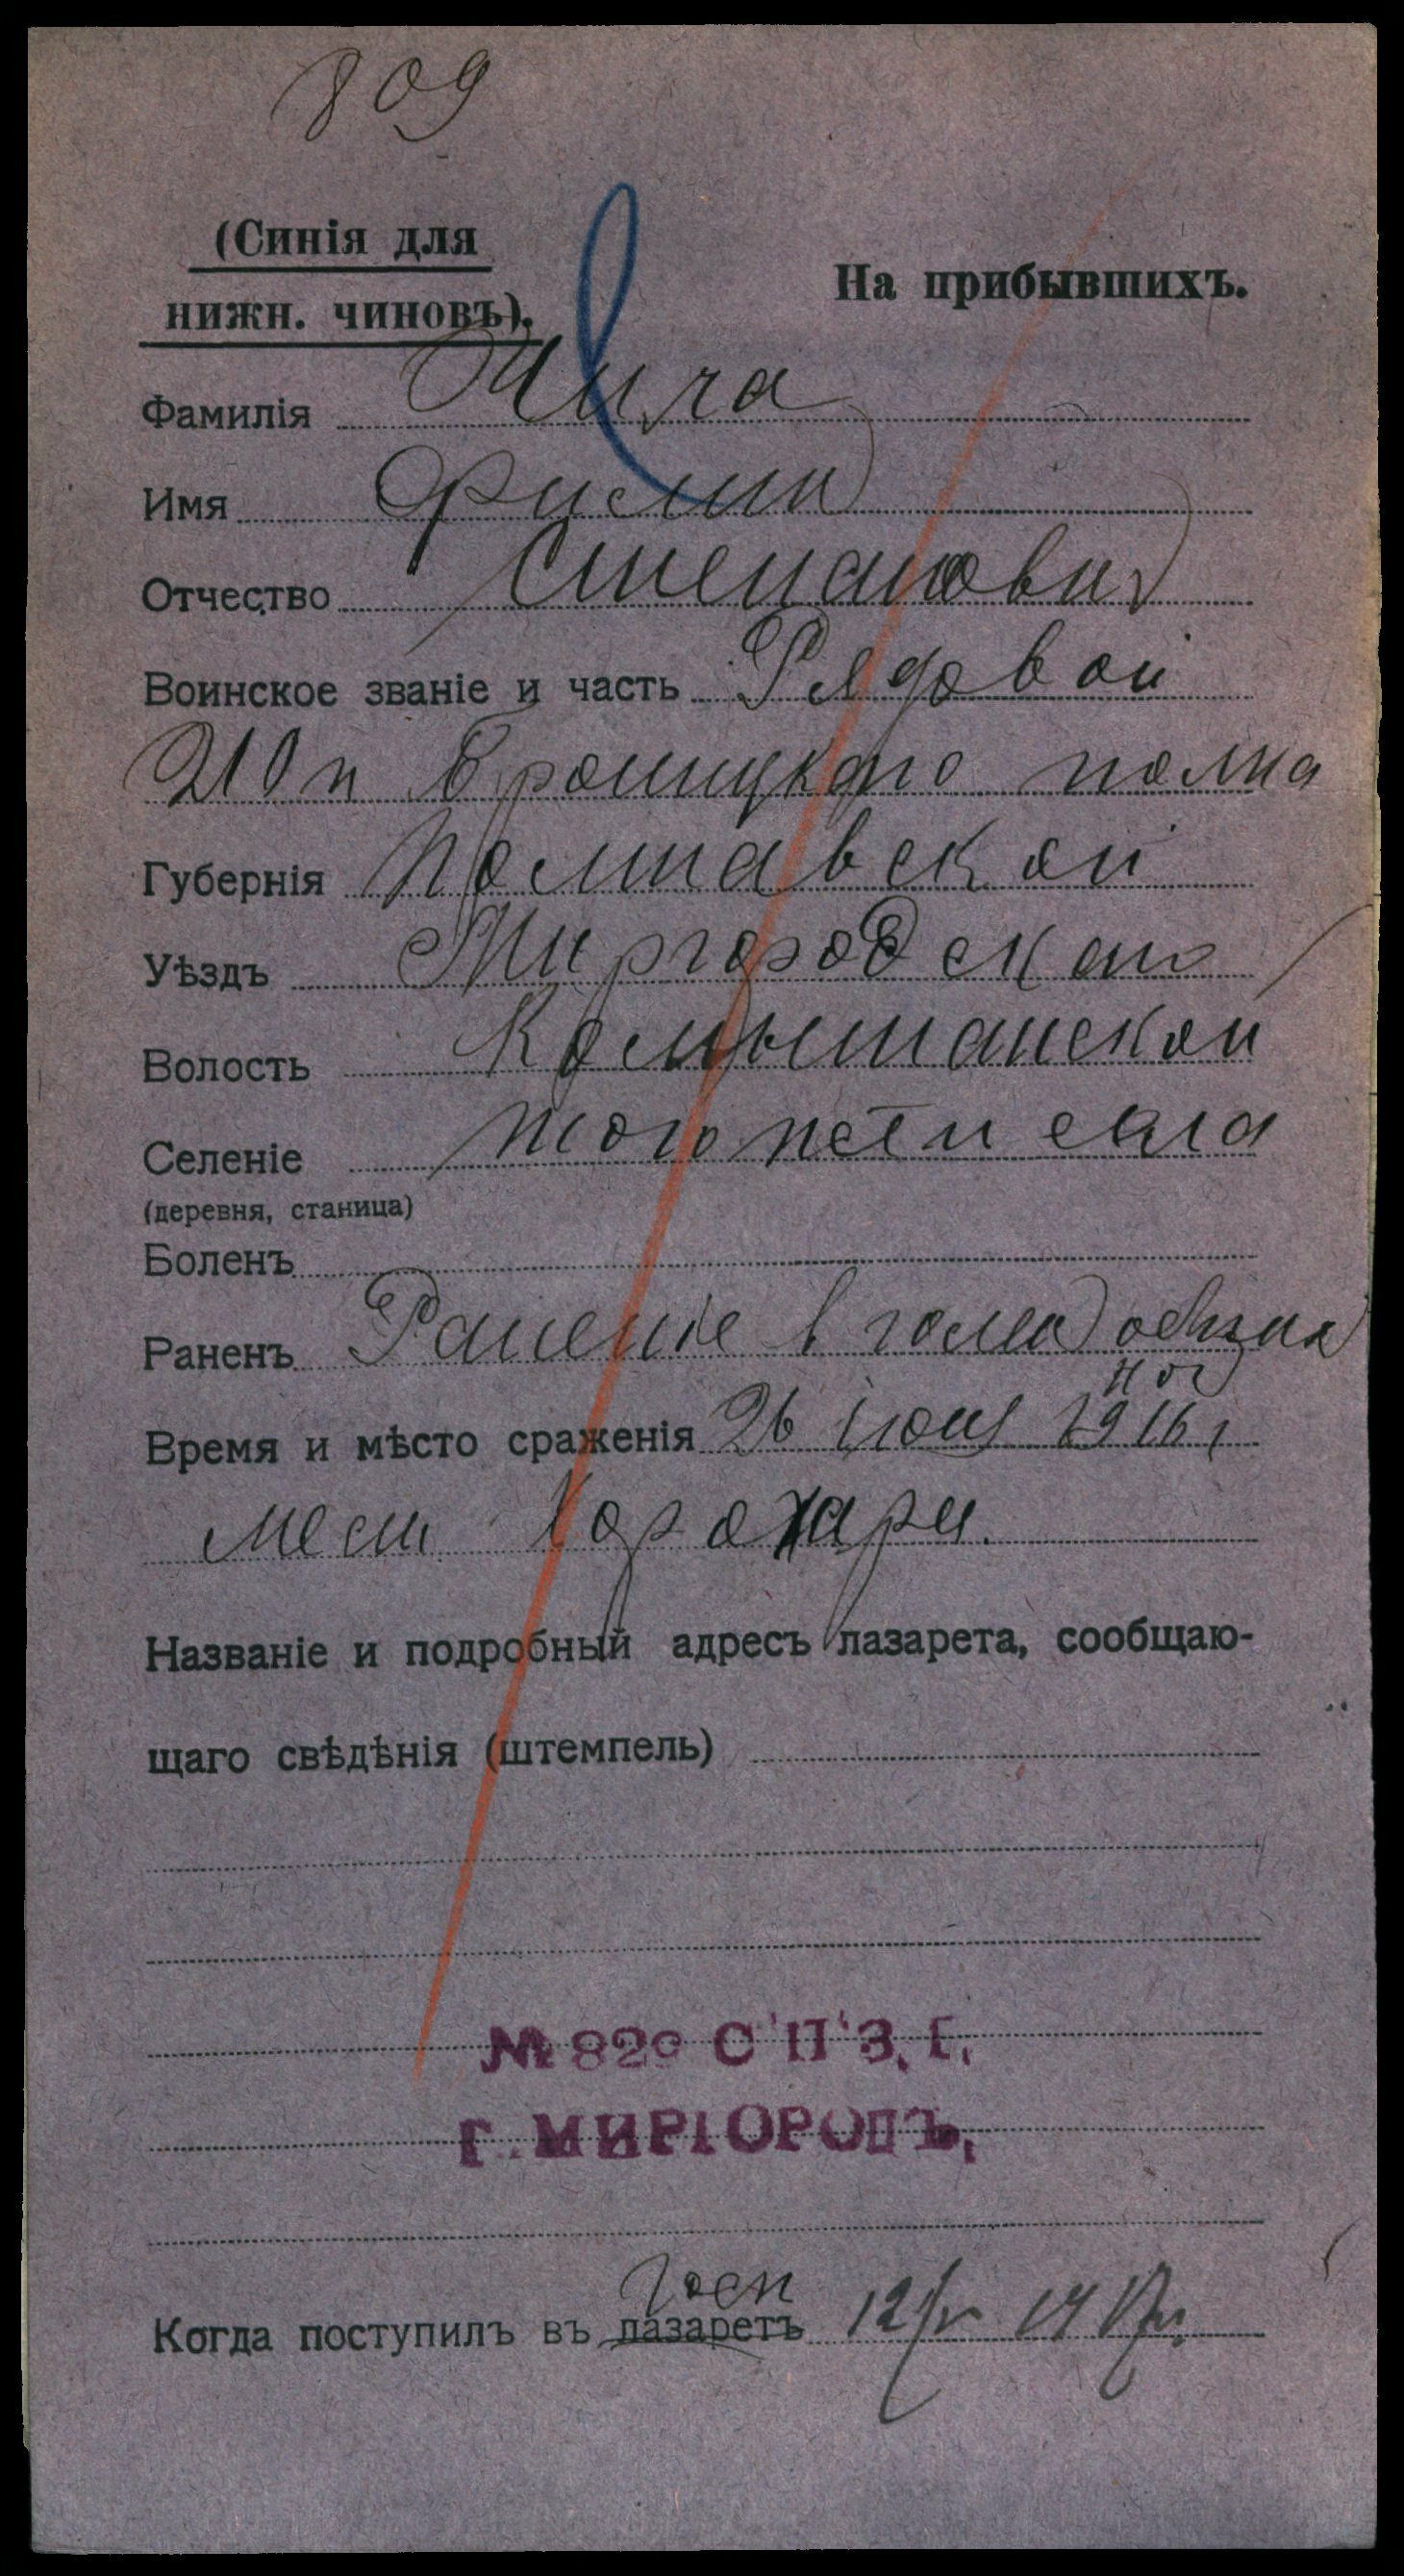 809
(Синія для
нижн. чиновъ).
На прибывшихъ.
Фамилія
Имя Филип
Отчество Степанович
Воинское званіе и часть Рядовой
210 п Броницкаго полка
Губернія Полтавской
Уѣздъ Миргородскаго
Волость Комышанской
Селеніе того же села
(деревня, станица)
Боленъ
Раненъ Раненіе в голень обеих
ног
Время и мѣсто сраженія 26 1916 г
мест.
Названіе и подробный адресъ лазарета, сообщаю-
щаго свѣдѣнія (штемпель)
№ 820 С П З. Г.
Г. МИРГОРОДЪ.
Госп
Когда поступилъ въ лазаретъ 12/V 1917г.